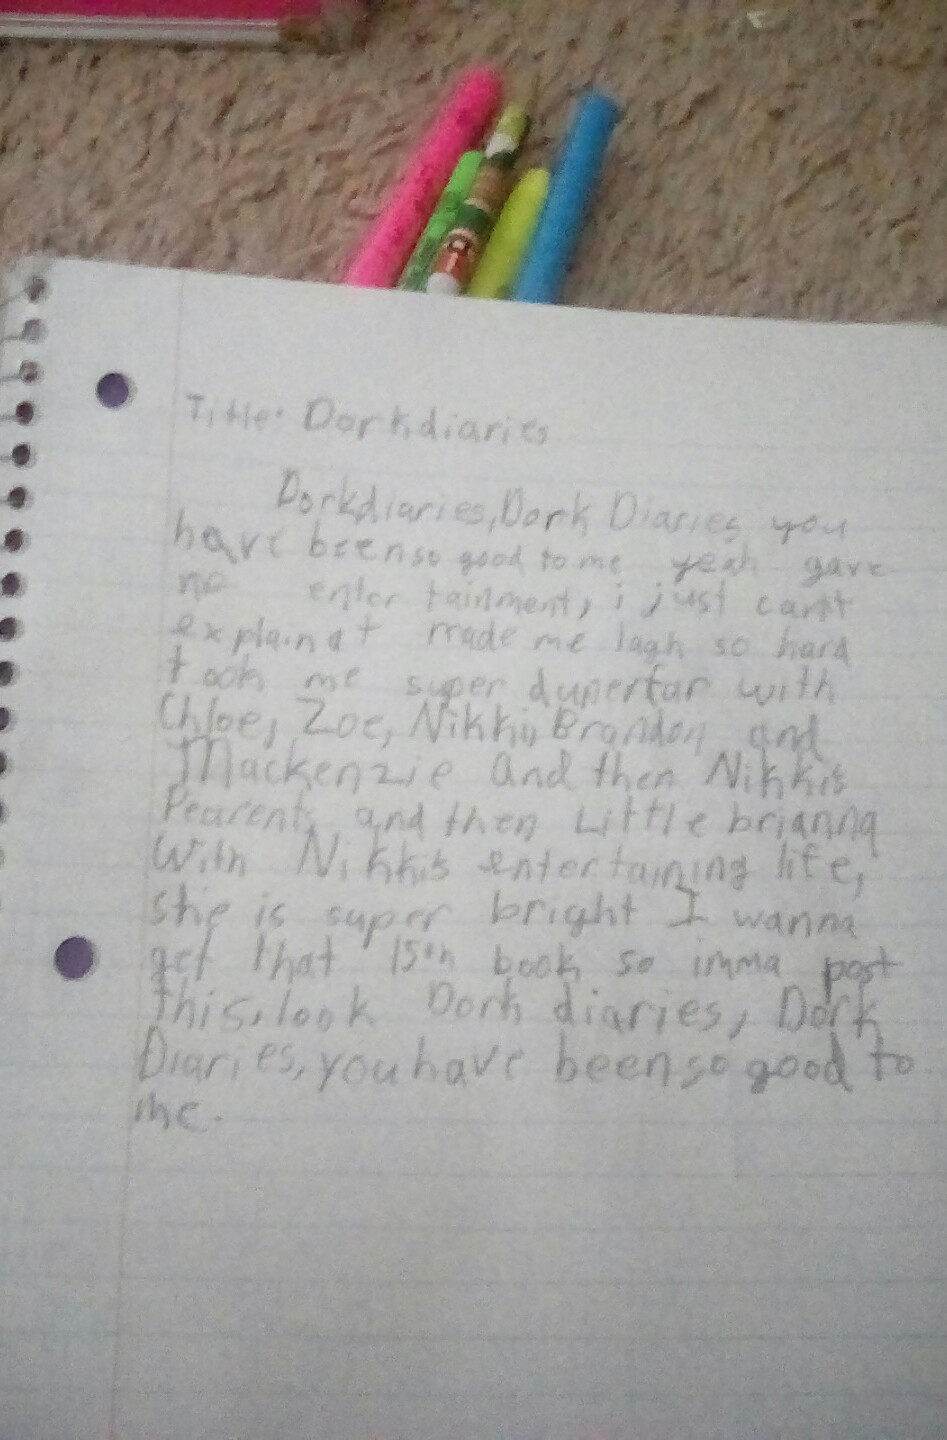 Title: Dorkdiaries
Dorkdiaries, Dork Diaries you
have been so good to me yeah gave
me enter tainment, i just can't
explain it made me lagh so hard
took me super duper far with
Chloe, Zoe, Nikki, Brandon and
Mackenzie and then Nikki's
Pearents and then Little brianna
With Nikki's entertaining life,
she is super bright I wanna
get that 15th book so imma post
this, look Dork diaries, Dork
Diaries, you have been so good to
me.